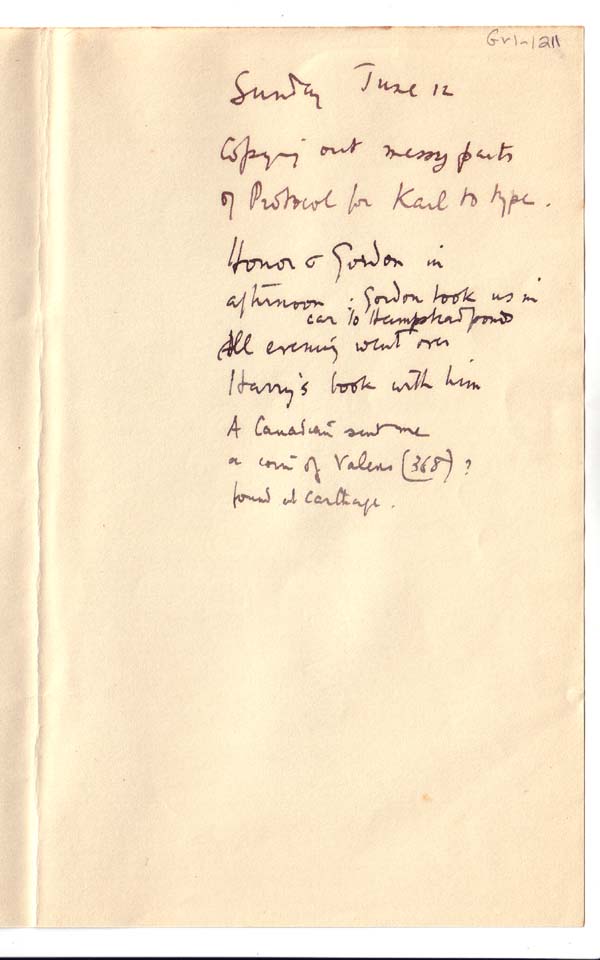 GV1-1211
Sunday June 12
Copying out messy parts
of Protocol for Karl to type.
Honor & Gordon in
afternoon : Gordon took us in
car to Hampstead ponds
All evening went over
Harry's book with him
A Canadian sent me
a coin of Valens (368) ?
found at Carthage.